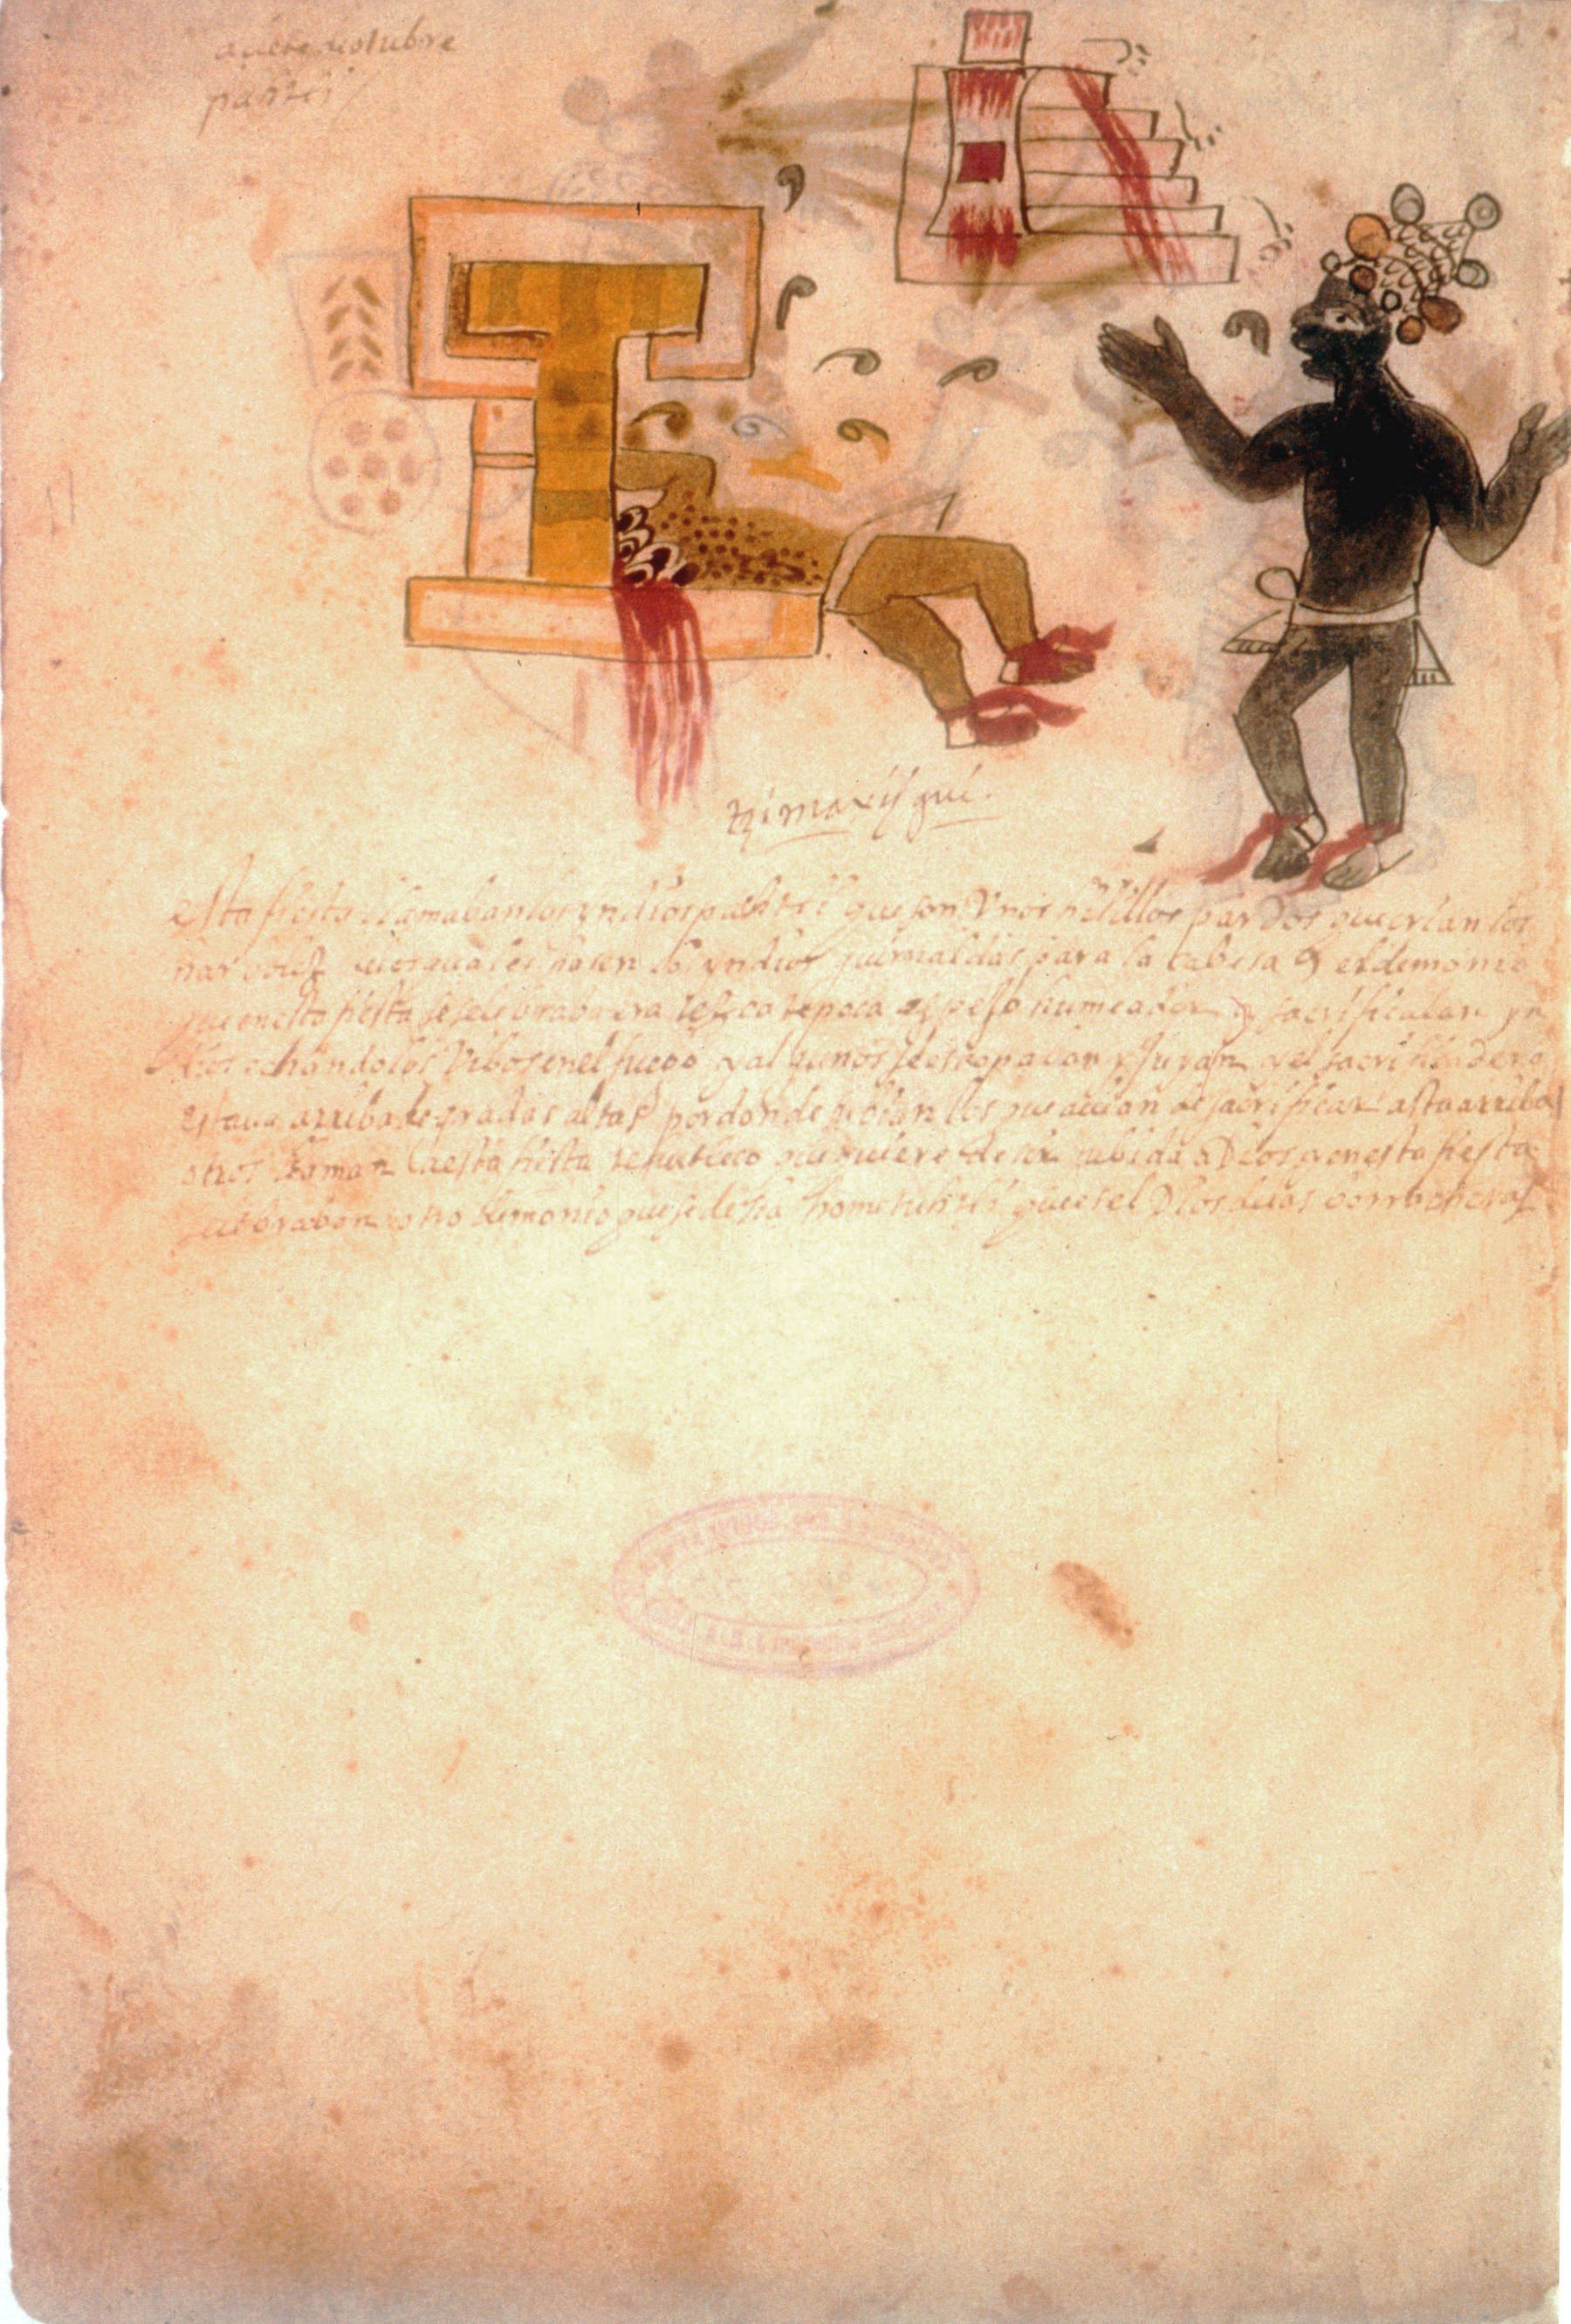 de otubre
pachtli
tzimaxisqui.
esta fiesta llamaban los yndios pachtli que son Unos hilillos pardos que crian los
harvoles de los quales hasen los yndios guirnaldas para la cabesa y el demonio
que en esta fiesta se selebraba era tezcatepoca espejo humeador y sacrificaban yn
dios echandolos vibos en el fuego y algunos se escapavan y huyan y el sacrificadero
estava arriba de gradas altas por donde los que avian de sacrificar asta arriba
otros llaman a esta fiesta teutleco que quiere desir subida a Dios y en esta fiesta
selebraban otro demonio que se desia hometuchtli que es el Dios de las borracheras